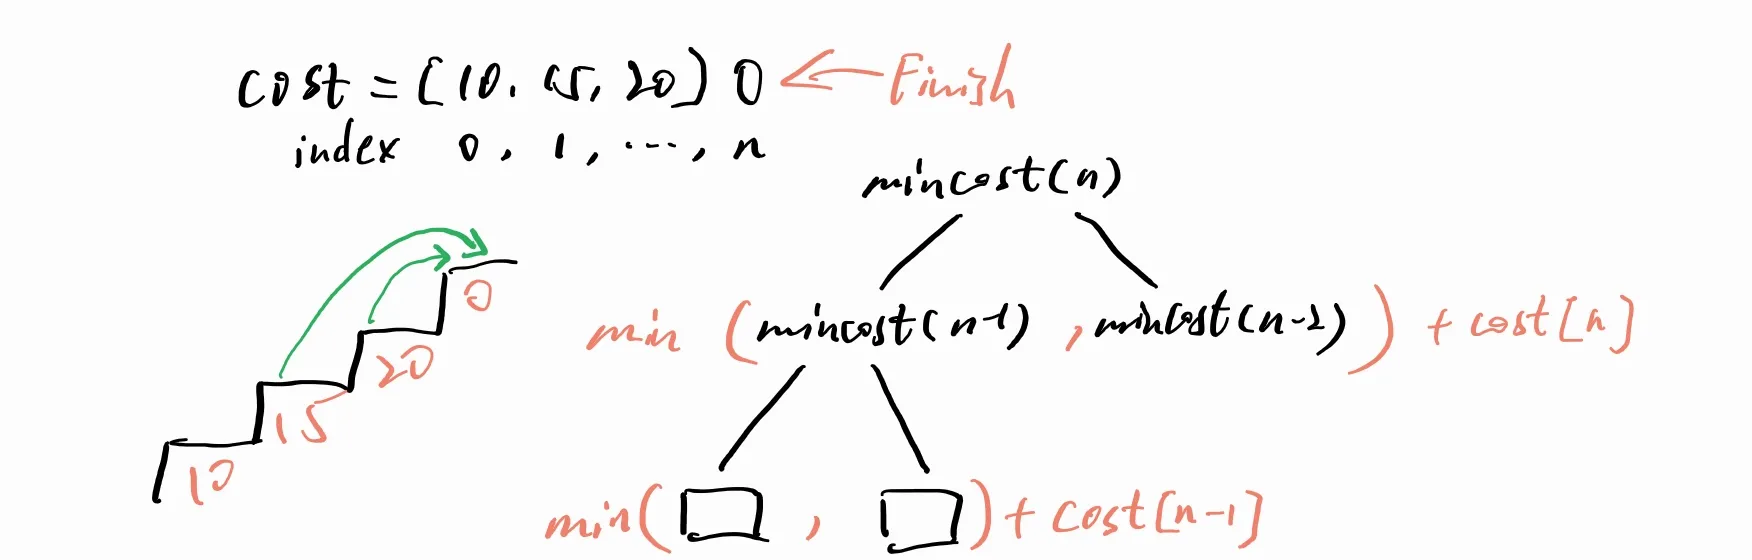 cost = [10, 15, 20] 0 ← Finish
index 0, 1, ..., n
mincost(n)
min (mincost(n-1), mincost(n-2)) + cost[n]
0
20
15
10
min(□, □) + cost[n-1]